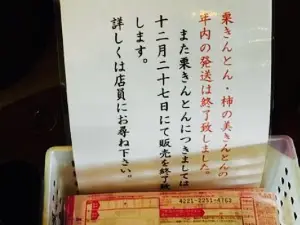 栗きんとん・柿の美きんとんの
年内の発送は終了致しました。
また栗きんとんにつきましては
十二月二十七日にて販売を終了致
します。
詳しくは店員にお尋ね下さい。
4221-2251-4763